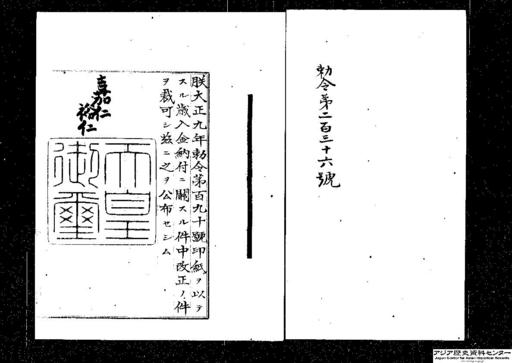 勅令第二百三十六號
朕大正九年勅令第百九十號印紙ヲ以テ
スル歳入金納付ニ關スル件中改正ノ件
ヲ裁可シ茲ニ之ヲ公布セシム
嘉仁
裕仁
天皇
御璽
アジア歴史資料センター
Japan Center for Asian Historical Records